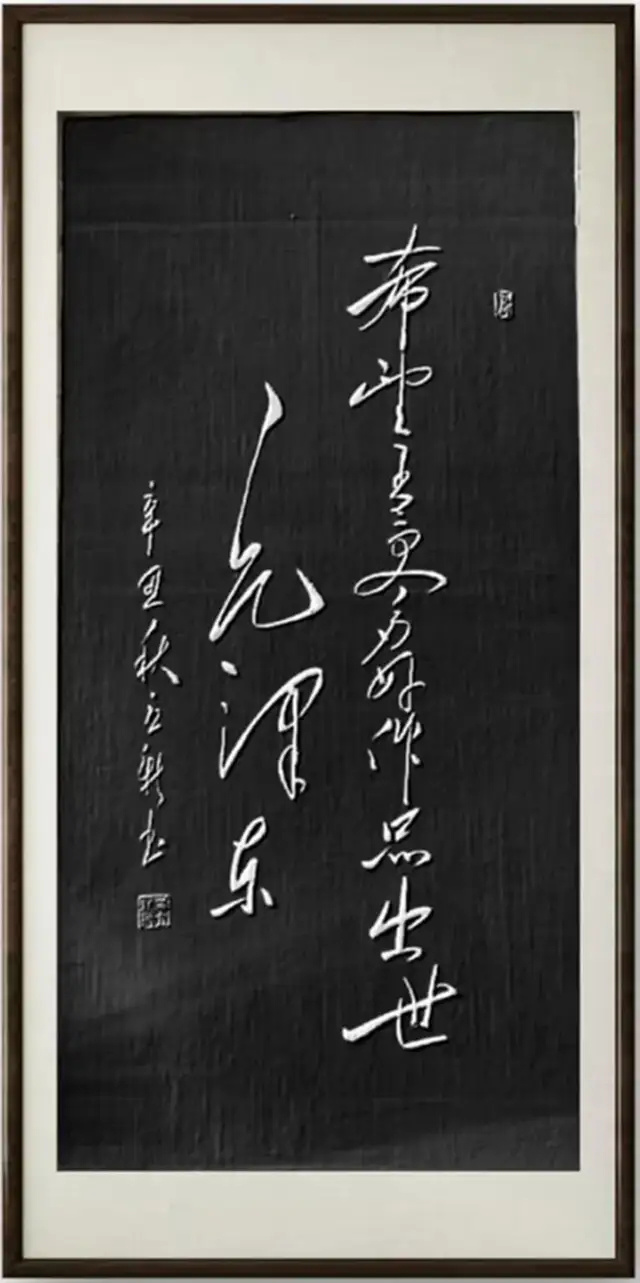 希望有更多好作品出世
毛泽东
辛丑秋书